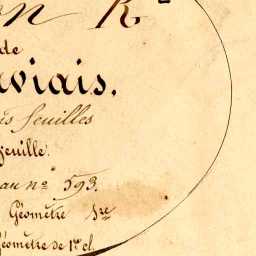 on R
de
viais.
feuilles
feuille.
au nº 593.
Géomètre
Géomètre de 1re cl.